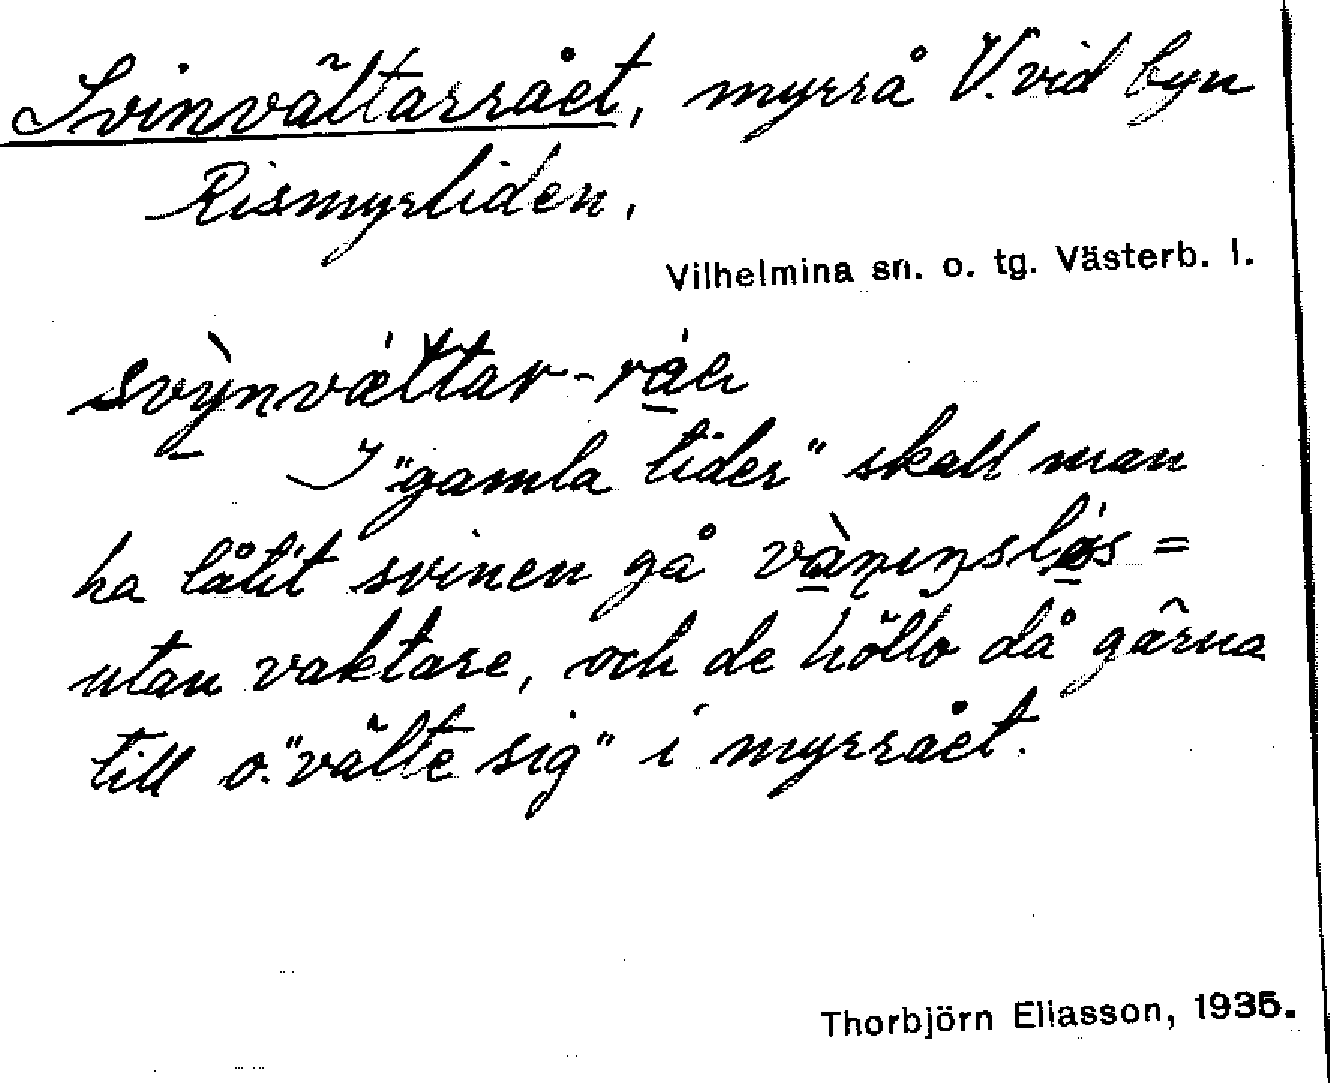 Svinvältarrået, myrrå V. vid byn
Rismyrliden.
Vilhelmina sn. o. tg. Västerb. l.
svỳ̠nvǽttar-rá̠a
I "gamla tider" skall man
ha låtit svinen gå và̠nıŋslǿ̠s =
utan vaktare, och de höllo då gärna
till o. "välte sig" i myrrået.
Thorbjörn Eliasson, 1935.